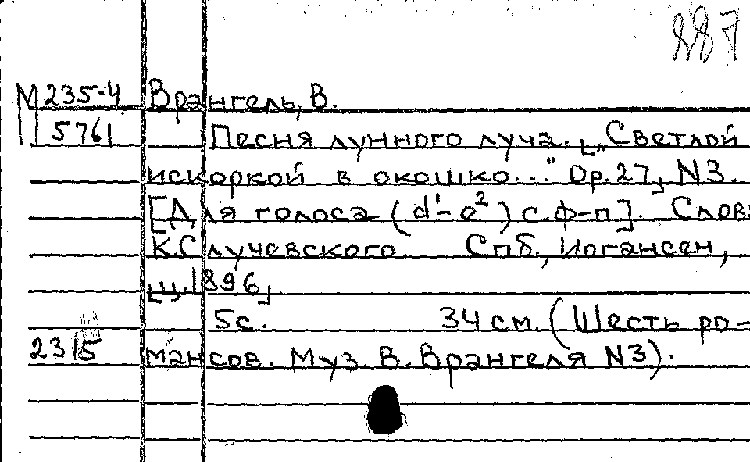 887
М 235-4 Врангель, В.
5761 Песня лунного луча. „Светлой
искоркой в окошко..." Ор.27, N3.
[Для голоса (d¹-e²) с ф-п]. Слова
К.Случевского Спб., Иогансен,
ц.1896
5с. 34 см. (Шесть ро-
2315 мансов. Муз. В. Врангеля N3).